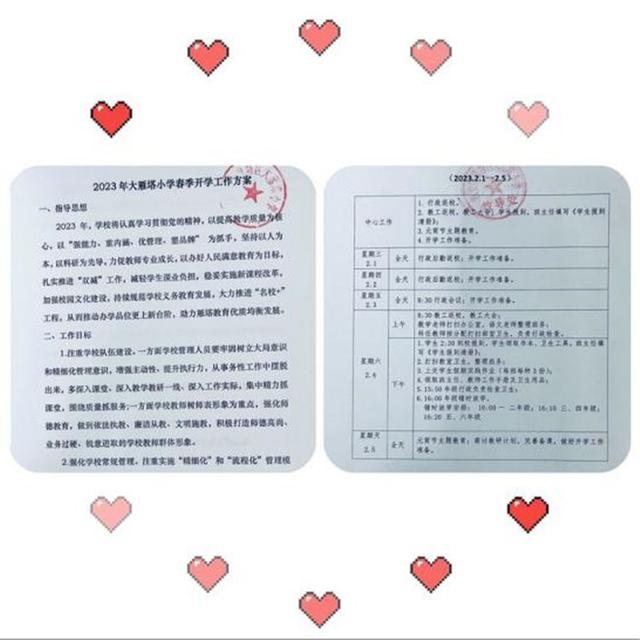 2023 年大雁塔小学春季开学工作方案
一、指导思想
2023 年，学校将认真学习贯彻党的精神，以提高教学质量为核
心，以“强能力、重内涵、优管理、塑品牌” 为抓手，坚持以人为
本，以科研为先导，力促教师专业成长，以办好人民满意教育为目标，
扎实推进“双减”工作，减轻学生课业负担，稳妥实施新课程改革，
加强校园文化建设，持续规范学校义务教育发展，大力推进“名校+”
工程，从而推动办学品位更上新台阶，助力雁塔教育优质均衡发展。
二、工作目标
1.注重学校队伍建设，一方面学校管理人员要牢固树立大局意识
和精细化管理意识，增强主动性、提升执行力，从事务性工作中摆脱
出来，多深入课堂、深入教学教研一线、深入工作实际，集中精力抓
课堂，围绕质量抓服务；一方面学校教师树师表形象为重点，强化师
德教育，做到依法执教、廉洁从教、文明施教，积极打造师德高尚、
业务过硬、锐意进取的学校教师群体形象。
2.强化学校常规管理，注重实施“精细化”和“流程化”管理模
（2023.2.1—2.5）
中心工作
1. 行政返校。
2. 教工返校，教工大会；学生报到，班主任填写《学生报到
清册》；
3. 元宵节主题教育。
4. 开学工作准备。
星期三
2.1
全天
行政后勤返校；开学工作准备。
星期四
2.2
全天
行政后勤返校；开学工作准备。
星期五
2.3
全天
8:30 行政会议；开学工作准备。
星期六
2.4
上午
8:30 教工返校，教工大会；
数学老师打扫办公室，语文老师整理班务；
科任教师按分配打扫部室卫生，负责行政检查。
下午
1.学生 2:30 到校报到，学生领取书本、卫生工具，班主任填
写《学生报到清册》；
2.打扫教室卫生，整理班务；
3.上交学生假期实践作业（每班每种 3 份）；
4.领取班主任、教师工作手册及卫生用品；
5.15:50 年级行政负责检查卫生；
6.16:00 年级错时放学
错时放学安排： 16:00 一 二年级；16:10 三、四年级；
16:20 五、六年级
星期天
2.5
全天
元宵节主题教育；商讨教研计划，完善备课，做好开学工作
准备。